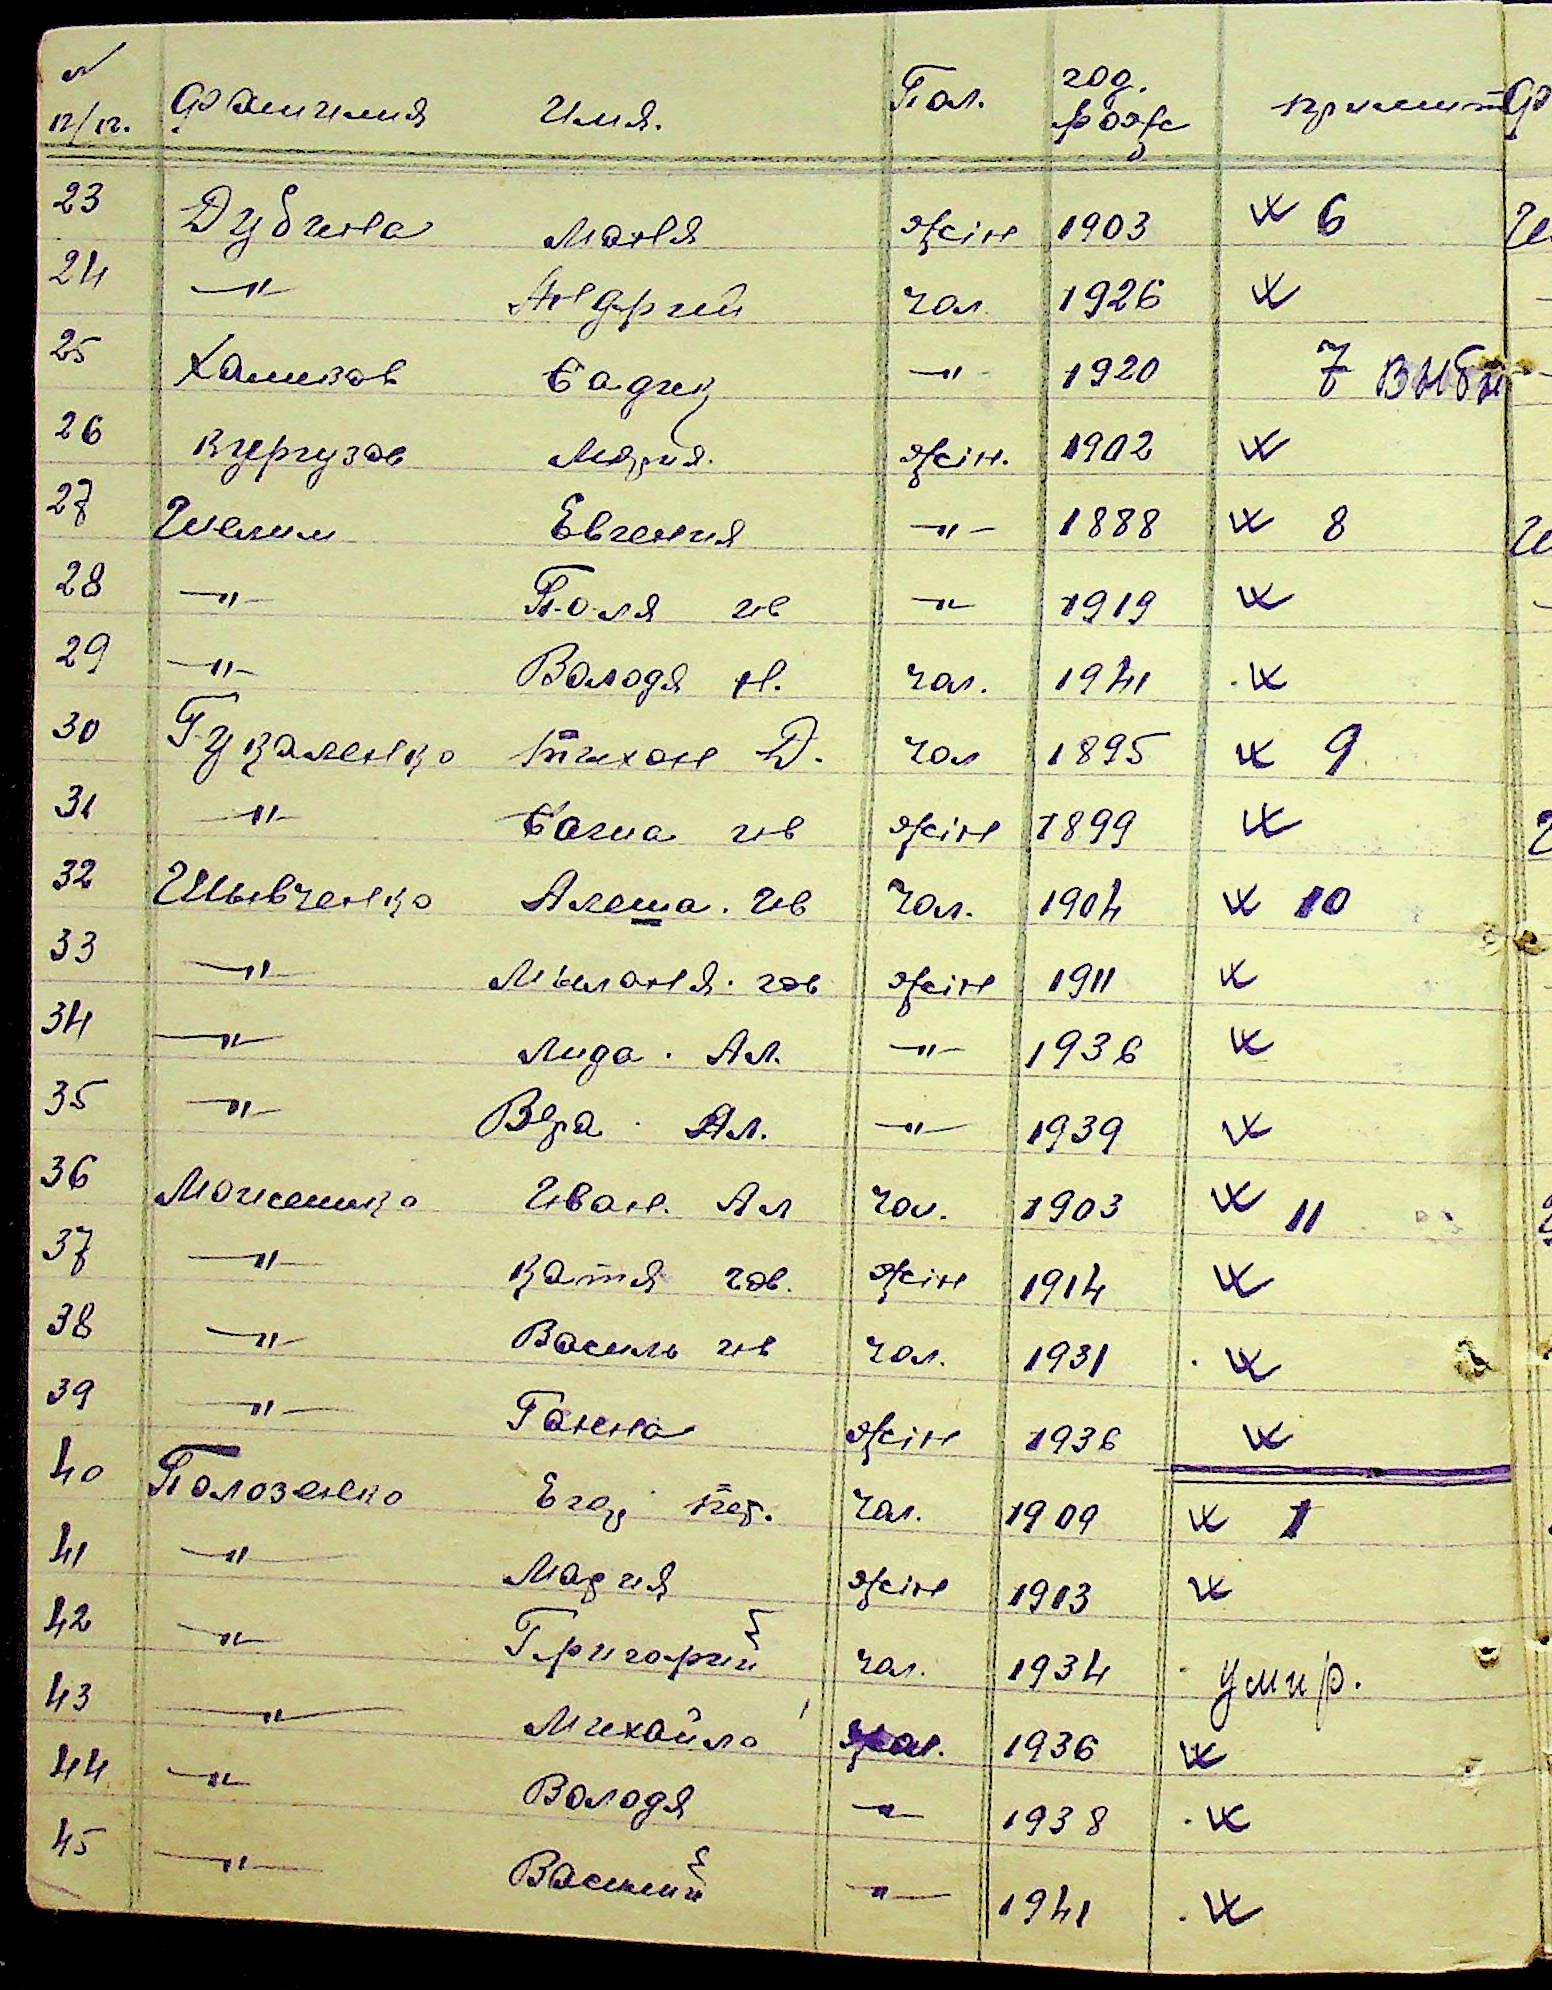 № п/п. Фамилия Имя. Пол. год. рожд примит
23 Дубина Маня жін 1903 6
24 —"— Андрий чол. 1926
25 Хамизов Садик —"— 1920 7 выбы
26 Кургузов Мария. жін. 1902
27 Шелим Евгения —"— 1888 8
28 —"— Поля ив —"— 1919
29 —"— Володя Н. чол. 1941
30 Гукаленко Тихон Д. чол 1895 9
31 —"— Сагша ив жін 1899
32 Шывченко Алеша. Ив чол. 1904 10
33 —"— Мыланя. гов жін 1911
34 —"— Лида. Ал. —"— 1936
35 —"— Вера. Ал. —"— 1939
36 Иван. Ал чол. 1903 11
37 —"— Катя гов. жін 1914
38 —"— Василь ив чол. 1931
39 —"— Ганна жін 1936
40 Полозенко Егор пет. чол. 1909 1
41 —"— Мария жін 1913
42 —"— Григорий чол. 1934 умир.
43 —"— Михайло чол. 1936
44 —"— Володя —"— 1938
45 —"— Василий —"— 1941